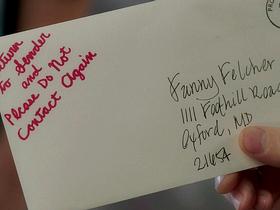 Return
To Sender
and
Please Do Not
Contact Again
Fanny Felcher
1111 Foothill Road
Oxford, MD
21654